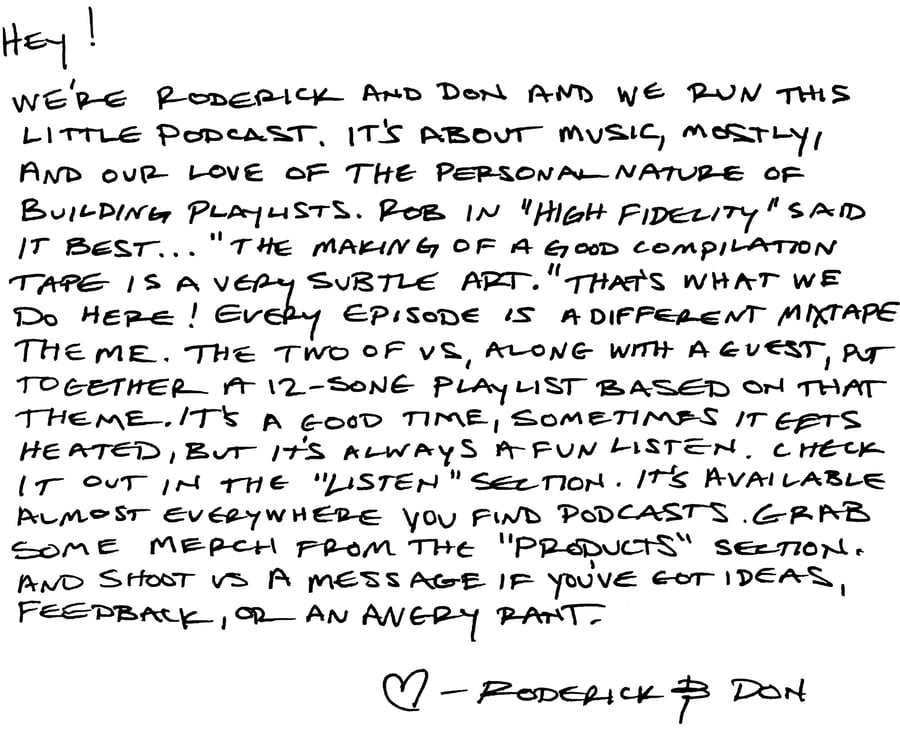 HEY!
WE'RE RODERICK AND DON AND WE RUN THIS
LITTLE PODCAST. IT'S ABOUT MUSIC, MOSTLY,
AND OUR LOVE OF THE PERSONAL NATURE OF
BUILDING PLAYLISTS. ROB IN "HIGH FIDELITY" SAID
IT BEST... "THE MAKING OF A GOOD COMPILATION
TAPE IS A VERY SUBTLE ART." THAT'S WHAT WE
DO HERE! EVERY EPISODE IS A DIFFERENT MIXTAPE
THEME. THE TWO OF US, ALONG WITH A GUEST, PUT
TOGETHER A 12-SONG PLAYLIST BASED ON THAT
THEME. IT'S A GOOD TIME, SOMETIMES IT GETS
HEATED, BUT IT'S ALWAYS A FUN LISTEN. CHECK
IT OUT IN THE "LISTEN" SECTION. IT'S AVAILABLE
ALMOST EVERYWHERE YOU FIND PODCASTS. GRAB
SOME MERCH FROM THE "PRODUCTS" SECTION.
AND SHOOT US A MESSAGE IF YOU'VE GOT IDEAS,
FEEDBACK, OR AN ANGRY RANT.
♡ - RODERICK & DON